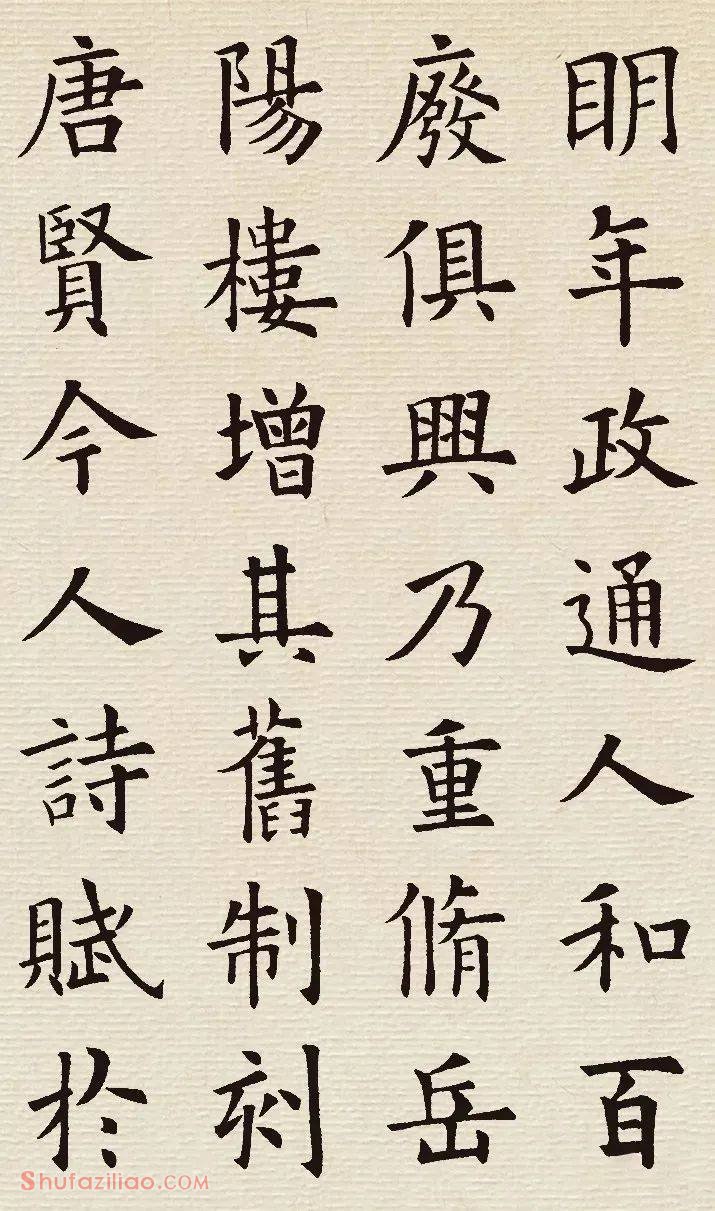 眀年政通人和百
廢俱興乃重脩岳
陽樓增其舊制刻
唐賢今人詩賦於
Shufaziliao.COM